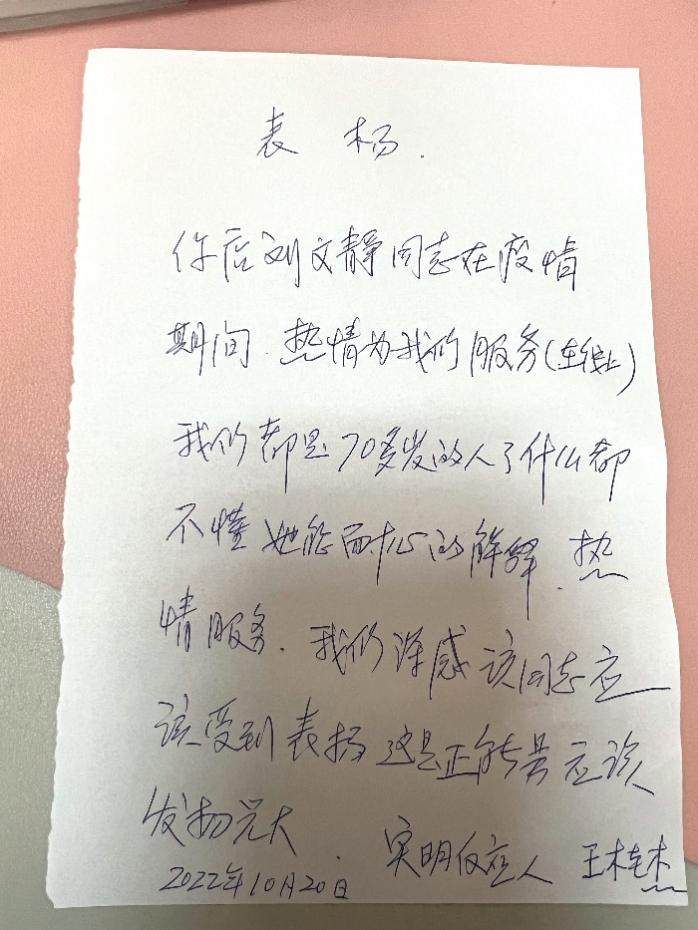 表 杨.
你店刘文静同志在疫情
期间.热情为我们服务(在线上)
我们都是70多岁的人了什么都
不懂她能耐心的解释.热
情服务.我们深感该同志应
该受到表扬这是正能量应该
发扬光大
2022年10月20日
人 王